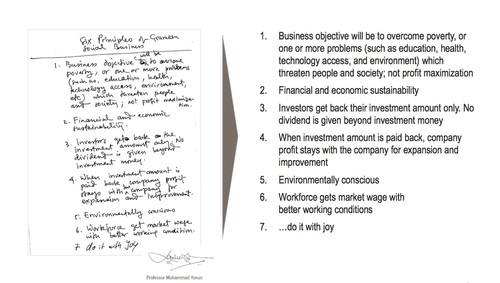 Six Principles of Grameen
Social Business
1. Business objective will be to overcome
poverty, or one or more problems
(such as, education, health,
technology access, environment,
etc) which threaten people
and society; not profit maximization.
2. Financial and economic
sustainability.
3. Investors get back the
investment amount only. No
dividend is given beyond
investment money.
4. When investment amount is
paid back, company profit
stays with company for
expansion and improvement.
5. Environmentally conscious
6. Workforce get market wage
with better working condition.
7. do it with joy
Professor Muhammad Yunus
1. Business objective will be to overcome poverty, or
one or more problems (such as education, health,
technology access, and environment) which
threaten people and society; not profit maximization
2. Financial and economic sustainability
3. Investors get back their investment amount only. No
dividend is given beyond investment money
4. When investment amount is paid back, company
profit stays with the company for expansion and
improvement
5. Environmentally conscious
6. Workforce gets market wage with
better working conditions
7. …do it with joy